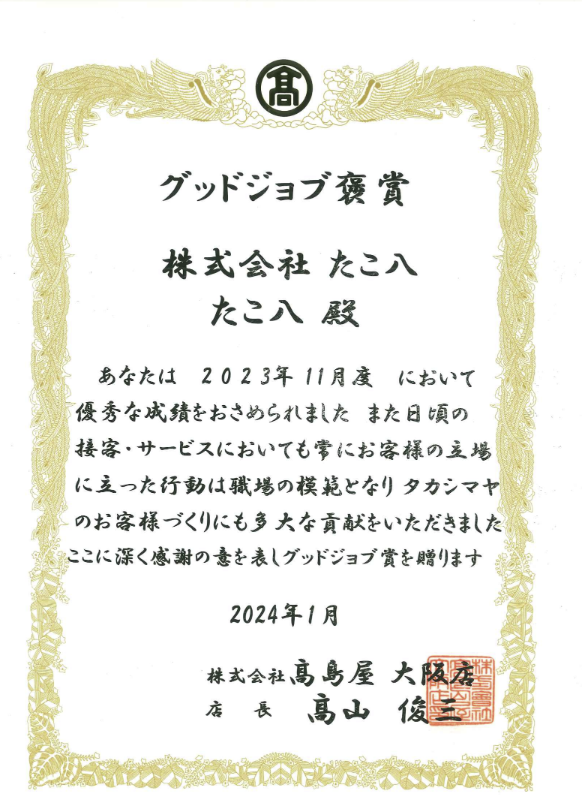 髙
グッドジョブ褒賞
株式会社 たこ八
たこ八 殿
あなたは 2023年 11月度 において
優秀な成績をおさめられました また日頃の
接客・サービスにおいても常にお客様の立場
に立った行動は職場の模範となり タカシマヤ
のお客様づくりにも多大な貢献をいただきました
ここに深く感謝の意を表しグッドジョブ賞を贈ります
2024年1月
株式会社髙島屋 大阪店
店 長 髙山 俊三